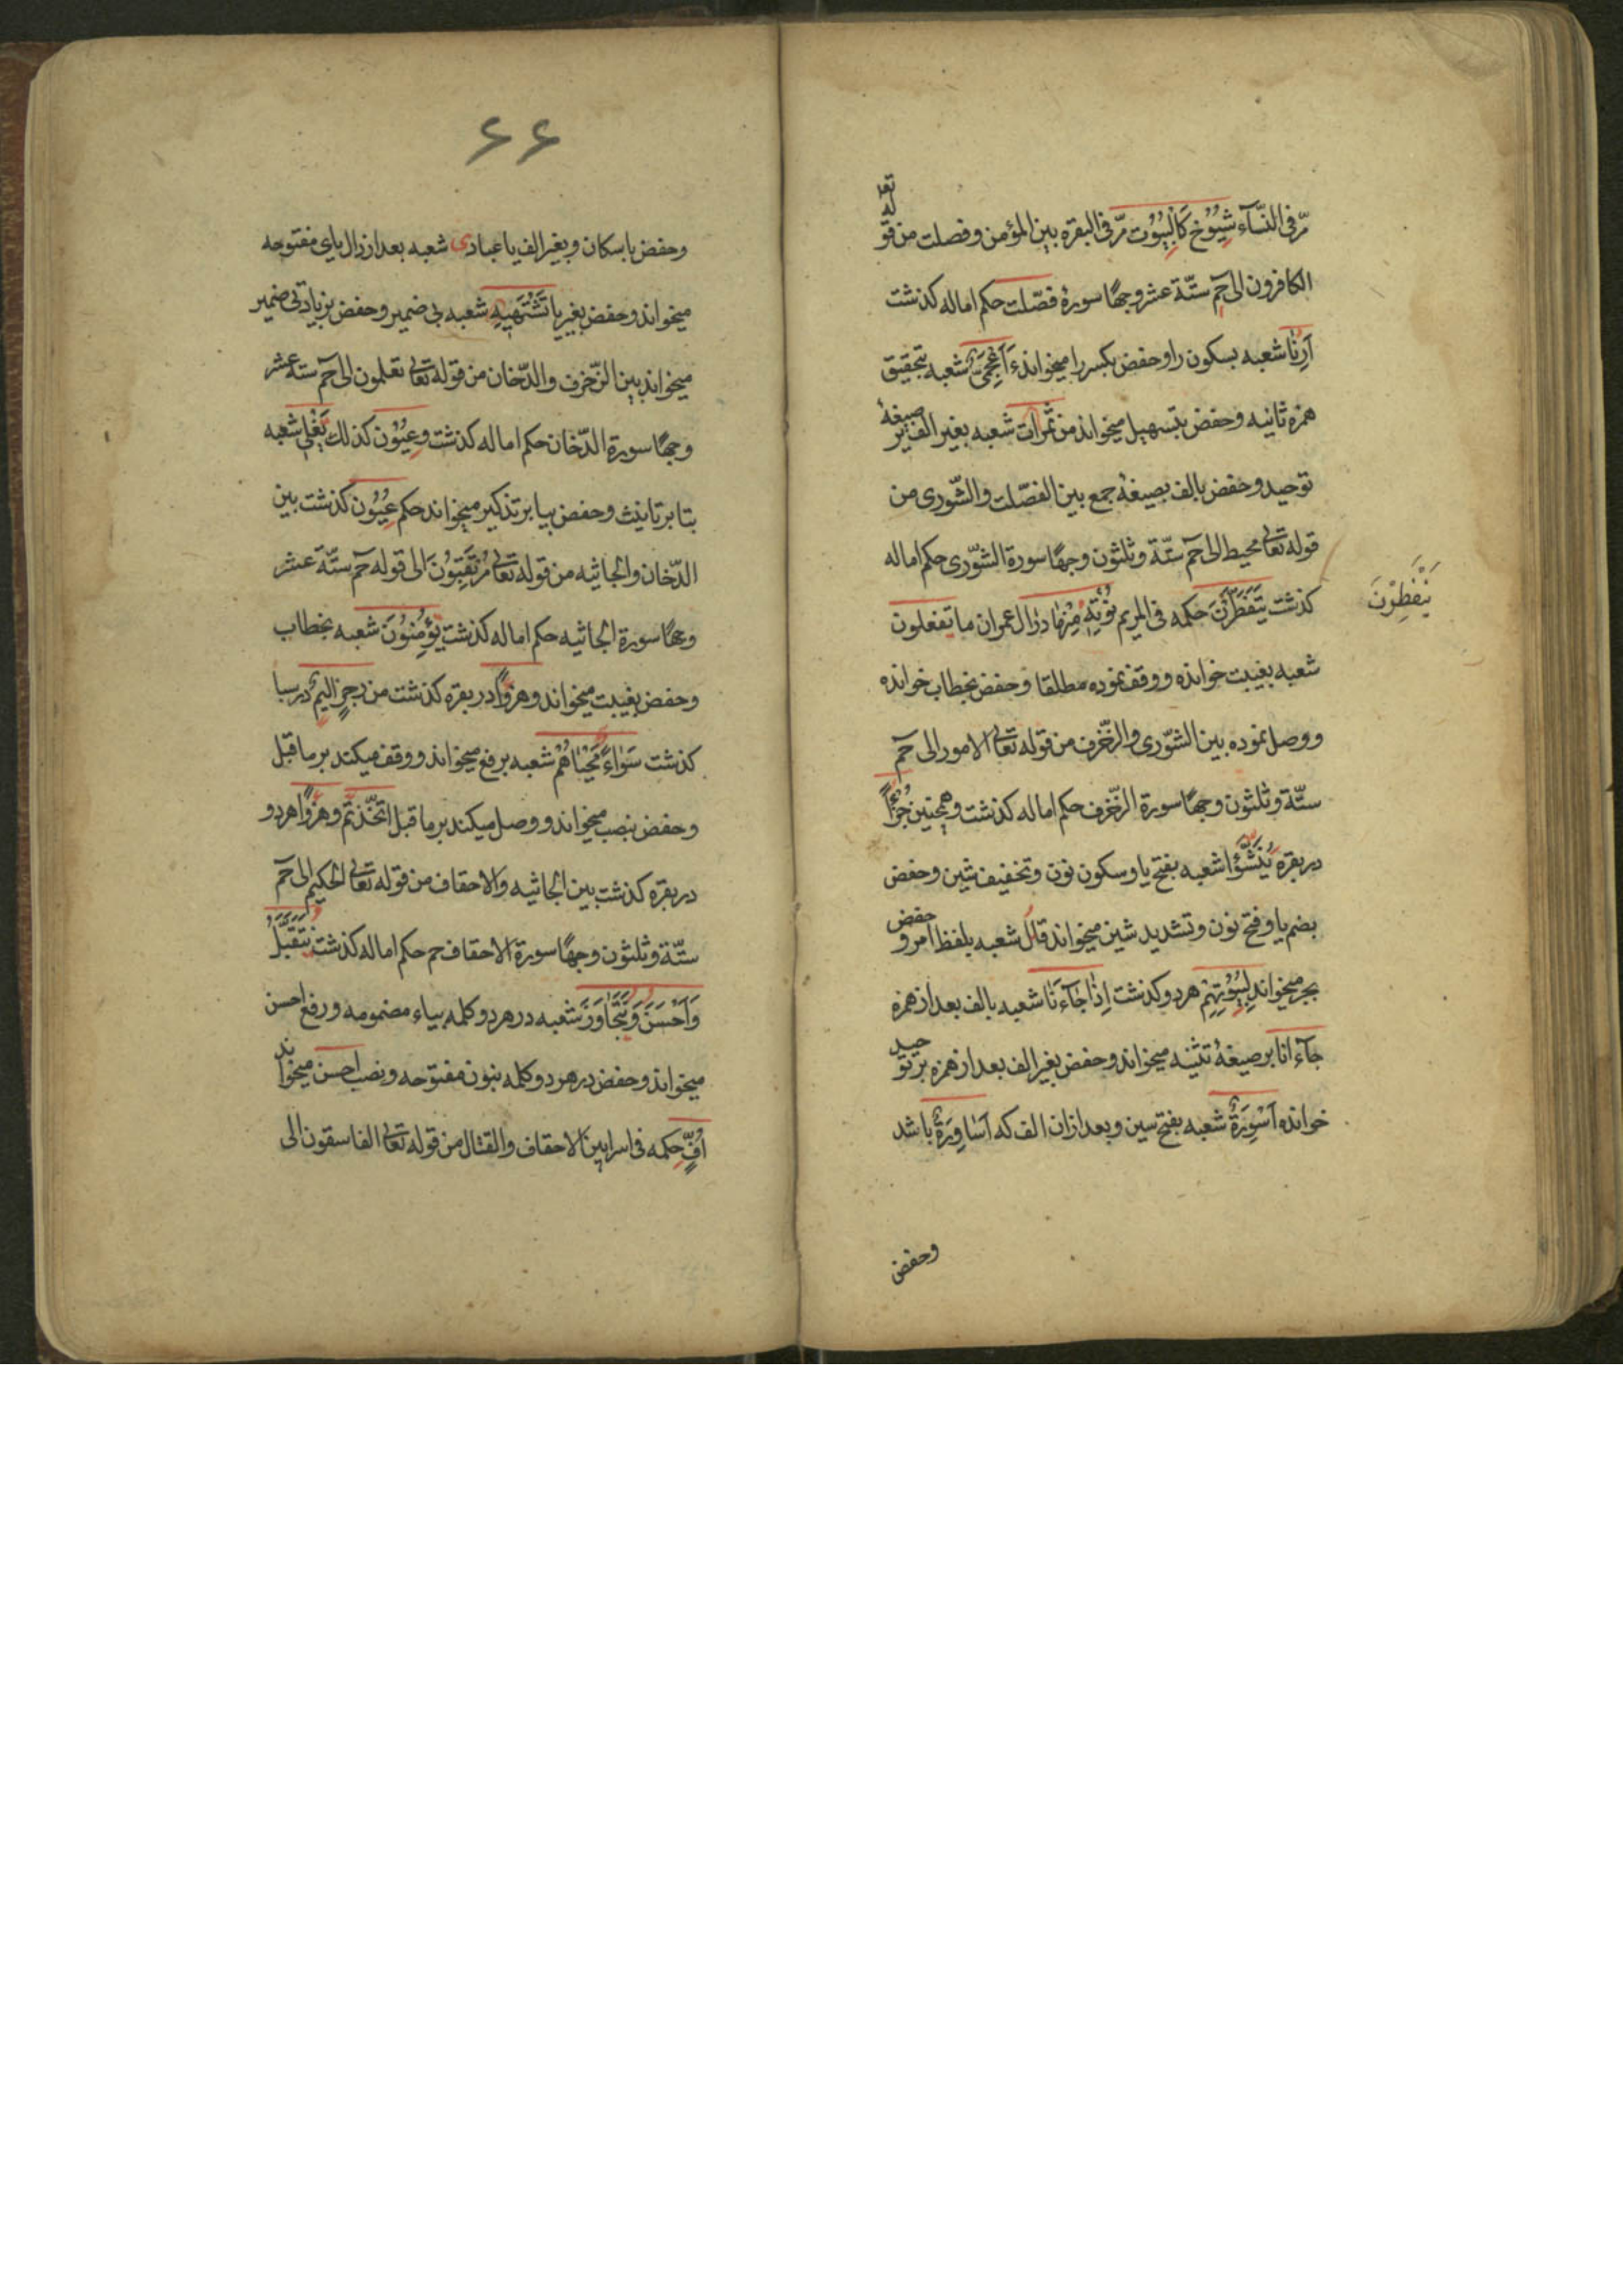 مرّ فی النّسآء شِیُوُخ کَالْبِیُوُت مرّ فی البقره بین المؤمن و فصلت من قوله تع
الکافرون الی حٓم ستّة عشر وجهًا سورهٔ فصّلت حکم اماله کذشت
اَرِنَا شعبه بسکون را و حفض بکسر را میخواند ءَاَعْجَمِیٌّ شعبه بتحقیق
همزه ثانیه و حفض بتسهیل میخواند من ثمرات شعبه بغیر الف بر صیغهٔ
توحید و حفض بالف بصیغهٔ جمع بین الفصّلت والشّوری من
قوله تعالی محیط الی حٓم ستّة و ثلثون وجهًا سورة الشّوری حکم اماله
کذشت یَتَفَطَّرْنَ حکمه فی المریم نُؤْتِهٖ مِنْهَا در ال عمران ما تفعلون
یَنْفَطِرْنَ
شعبه بغیبت خوانده و وقف نموده مطلقا و حفض بخطاب خوانده
و وصل نموده بین الشّوری والزّخرف من قوله تعالی الامور الی حٓم
ستّة و ثلثون وجهًا سورة الزّخرف حکم اماله کذشت و همچنین جُزُءًا
در بقره یُنَشَّؤُا شعبه بفتح یا و سکون نون و تخفیف شین و حفض
بضم یا و فتح نون و تشدید شین میخواند قال شعبه بلفظ امر و حفض
بجر میخواند لِبِیُوُتِهِم هر دو کذشت اِذَا جَآءَنَا شعبه بالف بعد از همزه
جآءانا بر صیغهٔ تثنیه میخواند و حفض بغیر الف بعد از همزه بر توحید
خوانده اَسْوِرَةٌ شعبه بفتح سین و بعد از ان الف که اَسَاوِرَةٌ باشد
وحفض
۶۶
وحفض باسکان و بغیر الف یا عبادی شعبه بعد از دال یای مفتوحه
میخواند و حفض بغیر یا تَشْتَهِیْهِ شعبه بی ضمیر و حفض بزیادتی ضمیر
میخواند بین الزّخرف والدّخان من قوله تعالی تعلمون الی حٓم ستة عشر
وجهًا سورة الدّخان حکم اماله کذشت وعِیُوُن کذلک یَغْلِی شعبه
بتا بر تانیث و حفض بیا بر تذکیر میخواند حکم عِیُوُن کذشت بین
الدّخان والجاثیه من قوله تعالی مُرْتَقِبُوْنَ الی قوله حٓم ستّة عشر
وجهًا سورة الجاثیه حکم اماله کذشت یُؤْمِنُوْنَ شعبه بخطاب
و حفض بغیبت میخواند و هزوًا در بقره کذشت من رجزٍ الیمٌ در سبا
کذشت سَوَاءً مَحْیَاهُمْ شعبه برفع میخواند و وقف میکند بر ما قبل
و حفض بنصب میخواند و وصل میکند بر ما قبل اتّخذتم و هزوًا هر دو
در بقره کذشت بین الجاثیه والاحقاف من قوله تعالی الحکیم الی حٓم
ستّة و ثلثون وجهًا سورة الاحقاف حم حکم اماله کذشت نَتَقَبَّلُ
وَاَحْسَنَ وَنَتَجَاوَزُ شعبه در هر دو کلمه بیاء مضمومه و رفع احسن
میخواند و حفض در هر دو کلمه بنون مفتوحه و نصب احسن میخواند
اُفٍّ حکمه فی اسرا بین الاحقاف والقتال من قوله تعالی الفاسقون الی